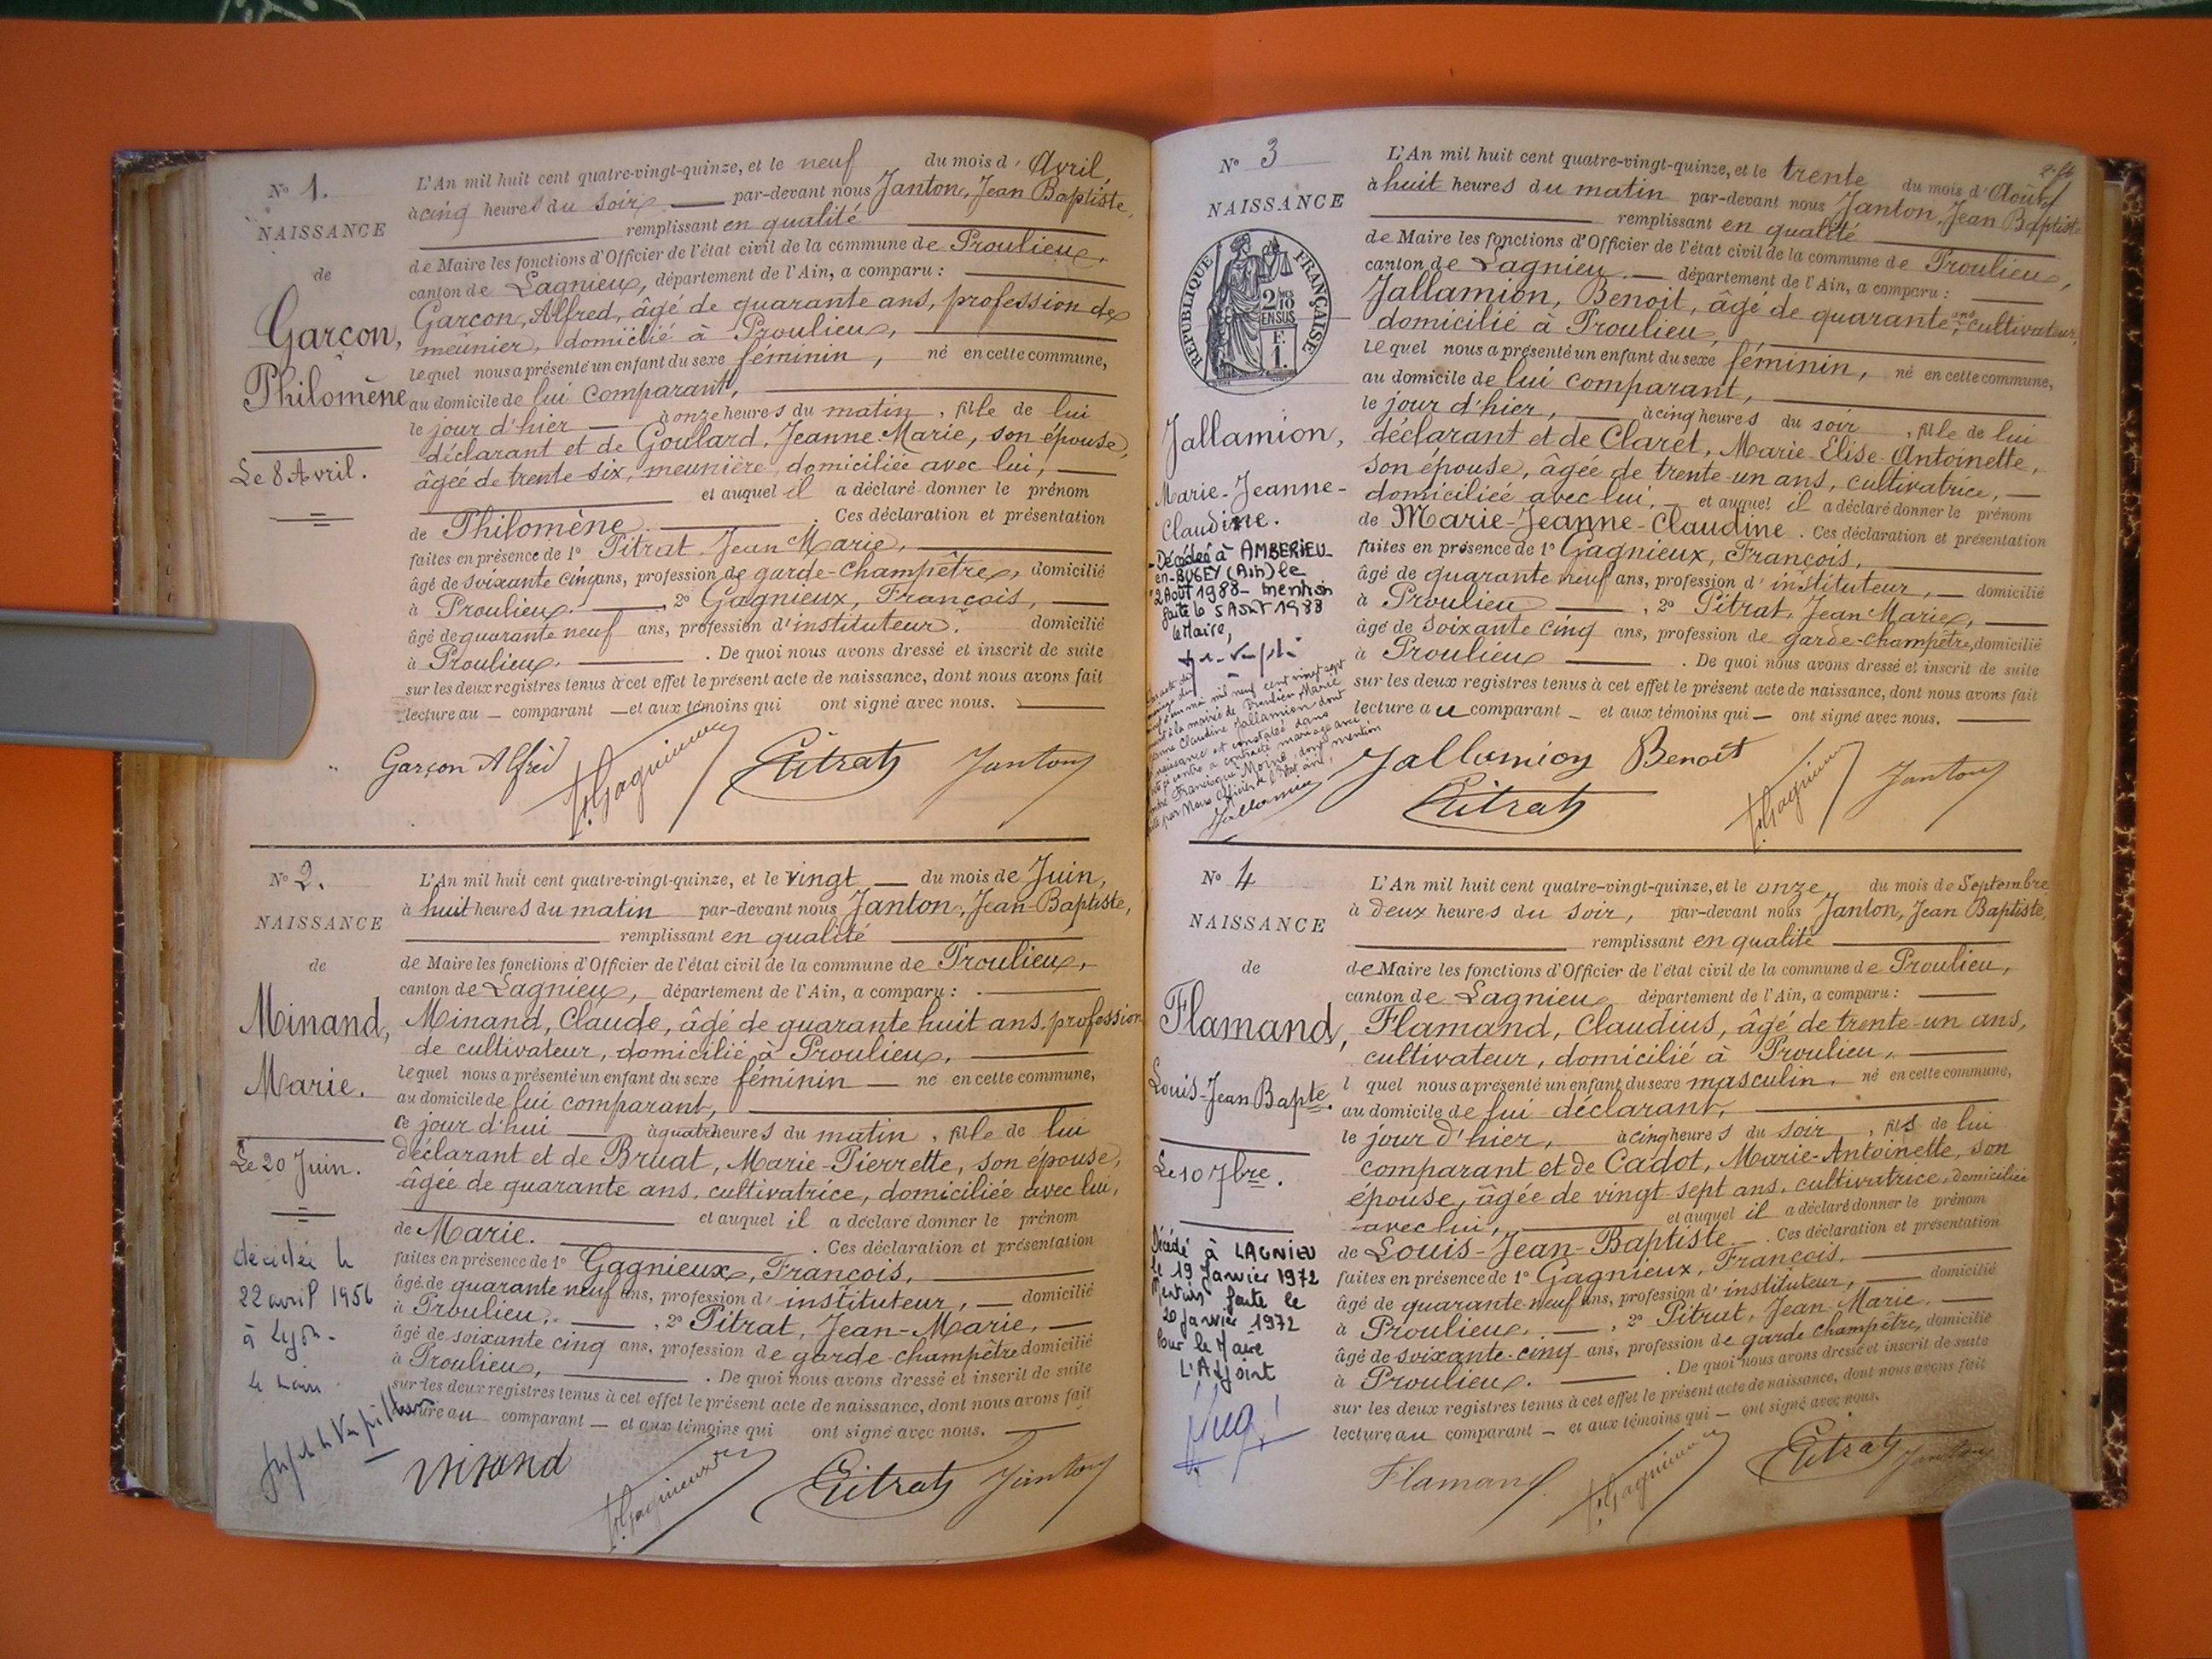 N° 1.
NAISSANCE
de
Garçon,
Philomène
Le 8 Avril.
L'An mil huit cent quatre-vingt-quinze, et le neuf du mois d'Avril,
à cinq heures du soir par-devant nous Janton, Jean Baptiste,
remplissant en qualité
de Maire les fonctions d'Officier de l'état civil de la commune de Proulieu,
canton de Lagnieu, département de l'Ain, a comparu :
Garçon, Alfred, âgé de quarante ans, profession de
meunier, domicilié à Proulieu,
lequel nous a présenté un enfant du sexe féminin, né en cette commune,
au domicile de lui comparant,
le jour d'hier à onze heures du matin, fille de lui
déclarant et de Goullard, Jeanne-Marie, son épouse,
âgée de trente-six, meunière domiciliée avec lui,
et auquel il a déclaré donner le prénom
de Philomène. Ces déclaration et présentation
faites en présence de 1° Pitrat, Jean Marie,
âgé de soixante cinq ans, profession de garde-champêtre, domicilié
à Proulieu. 2° Gagnieux, François,
âgé de quarante neuf ans, profession d'instituteur. domicilié
à Proulieu. . De quoi nous avons dressé et inscrit de suite
sur les deux registres tenus à cet effet le présent acte de naissance, dont nous avons fait
lecture au comparant et aux témoins qui ont signé avec nous.
Garçon Alfred F. Gagnieux Pitrat Janton
N° 2.
NAISSANCE
de
Minand,
Marie.
Le 20 Juin.
décédée le
22 avril 1956
à Lyon-
le maire
L'An mil huit cent quatre-vingt-quinze, et le vingt du mois de Juin,
à huit heures du matin par-devant nous Janton, Jean-Baptiste,
remplissant en qualité
de Maire les fonctions d'Officier de l'état civil de la commune de Proulieu,
canton de Lagnieu, département de l'Ain, a comparu :
Minand, Claude, âgé de quarante huit ans, profession
de cultivateur, domicilié à Proulieu,
lequel nous a présenté un enfant du sexe féminin né en cette commune,
au domicile de lui comparant,
ce jour d'hui à quatre heures du matin, fille de lui
déclarant et de Bruat, Marie-Pierrette, son épouse,
âgée de quarante ans, cultivatrice, domiciliée avec lui,
et auquel il a déclaré donner le prénom
de Marie. . Ces déclaration et présentation
faites en présence de 1° Gagnieux, François,
âgé de quarante neuf ans, profession d'instituteur, domicilié
à Proulieu, , 2° Pitrat, Jean-Marie,
âgé de soixante cinq ans, profession de garde-champêtre domicilié
à Proulieu, . De quoi nous avons dressé et inscrit de suite
sur les deux registres tenus à cet effet le présent acte de naissance, dont nous avons fait
lecture au comparant et aux témoins qui ont signé avec nous.
Minand F. Gagnieux Pitrat Janton
N° 3
NAISSANCE
REPUBLIQUE FRANÇAISE
2 10MES
EN SUS
F.
1.
Jallamion,
Marie-Jeanne-
Claudine.
Décédée à AMBERIEU-
en-BUGEY (Ain) le
2 Août 1988 - mention
faite le 5 Août 1988
le Maire,
mil neuf cent vingt sept
à la mairie de Proulieu Marie
Jeanne Claudine Jallamion dont
naissance est constatée dans
contre a contracté mariage avec
dont mention
par Nous Officier de l'état civil,
Jallamion
L'An mil huit cent quatre-vingt-quinze, et le trente du mois d'Août
à huit heures du matin par-devant nous Janton, Jean Baptiste
remplissant en qualité
de Maire les fonctions d'Officier de l'état civil de la commune de Proulieu,
canton de Lagnieu département de l'Ain, a comparu :
Jallamion, Benoit, âgé de quarante ans cultivateur,
domicilié à Proulieu,
lequel nous a présenté un enfant du sexe féminin, né en cette commune,
au domicile de lui comparant,
le jour d'hier, à cinq heures du soir, fille de lui
déclarant et de Claret, Marie-Elise-Antoinette,
son épouse, âgée de trente-un ans, cultivatrice,
domiciliée avec lui, et auquel il a déclaré donner le prénom
de Marie-Jeanne-Claudine. Ces déclaration et présentation
faites en présence de 1° Gagnieux, François,
âgé de quarante neuf ans, profession d'instituteur, domicilié
à Proulieu , 2° Pitrat, Jean Marie,
âgé de soixante cinq ans, profession de garde-champêtre, domicilié
à Proulieu . De quoi nous avons dressé et inscrit de suite
sur les deux registres tenus à cet effet le présent acte de naissance, dont nous avons fait
lecture au comparant et aux témoins qui ont signé avec nous.
Jallamion Benoit
Pitrat F. Gagnieux Janton
N° 4
NAISSANCE
de
Flamand,
Louis-Jean Bapte.
Le 10 7bre.
Décédé à LAGNIEU
le 19 Janvier 1972
Mention faite le
20 Janvier 1972
Pour le Maire
L'Adjoint
L'An mil huit cent quatre-vingt-quinze, et le onze du mois de Septembre
à deux heures du soir, par-devant nous Janton, Jean Baptiste,
remplissant en qualité
de Maire les fonctions d'Officier de l'état civil de la commune de Proulieu,
canton de Lagnieu département de l'Ain, a comparu :
Flamand, Claudius, âgé de trente-un ans,
cultivateur, domicilié à Proulieu,
l quel nous a présenté un enfant du sexe masculin, né en cette commune,
au domicile de lui déclarant,
le jour d'hier, à cinq heures du soir, fils de lui
comparant et de Cadot, Marie-Antoinette, son
épouse, âgée de vingt sept ans, cultivatrice, domiciliée
avec lui, et auquel il a déclaré donner le prénom
de Louis-Jean-Baptiste. . Ces déclaration et présentation
faites en présence de 1° Gagnieux, François,
âgé de quarante-neuf ans, profession d'instituteur, domicilié
à Proulieu, , 2° Pitrat, Jean-Marie,
âgé de soixante-cinq ans, profession de garde champêtre, domicilié
à Proulieu. . De quoi nous avons dressé et inscrit de suite
sur les deux registres tenus à cet effet le présent acte de naissance, dont nous avons fait
lecture au comparant et aux témoins qui ont signé avec nous.
Flamand F. Gagnieux Pitrat Janton